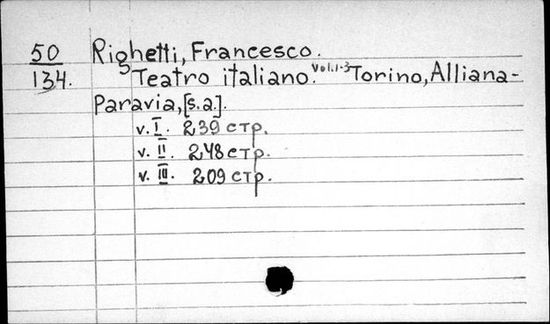 50 Righetti, Francesco.
134. Teatro italiano. Vol.1-3 Torino, Alliana-
Paravia, [s.a.].
v. I. 239 стр.
v. II. 248 стр.
v. III. 209 стр.